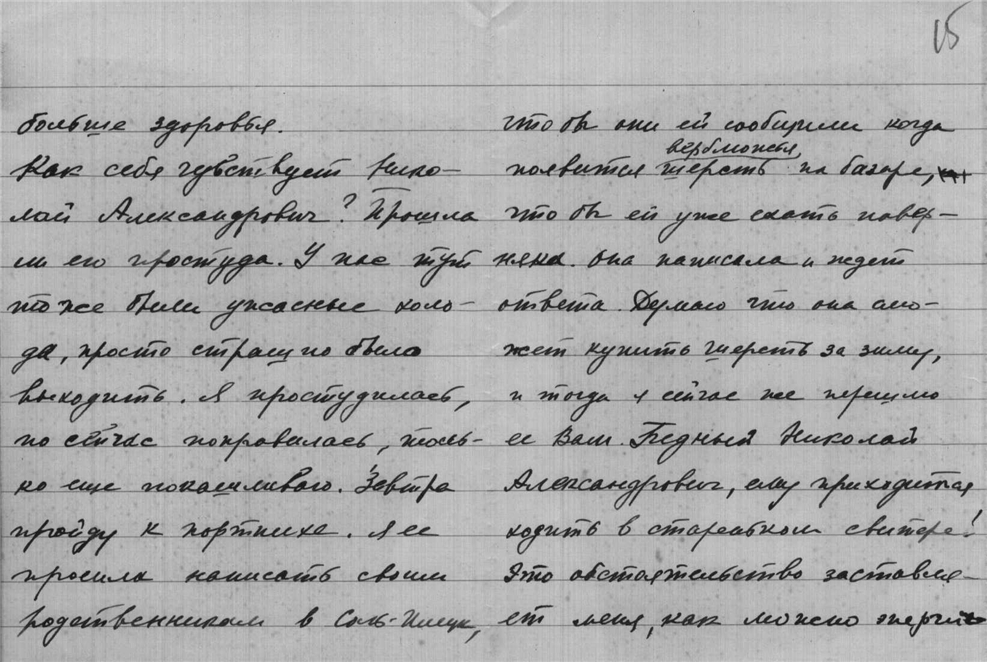 15
больше здоровья.
Как себя чувствует Нико-
лай Александрович? Прошла
ли его простуда. У нас тут
тоже были ужасные холо-
да, просто страшно было
выходить. Я простудилась,
но сейчас поправилась, толь-
ко еще покашливаю. Завтра
пройду к портнихе. Я ее
просила написать своим
родственникам в Соль-Илецк,
что бы они ей сообщили когда
верблюжья
появится шерсть на базаре,
что бы ей уже ехать навер-
няка. Она написала и ждет
ответа. Думаю что она смо-
жет купить шерсть за зиму,
и тогда я сейчас же перешлю
ее Вам. Бедный Николай
Александрович, ему приходится
ходить в стареньком свитере!
Это обстоятельство заставля-
ет меня, как можно